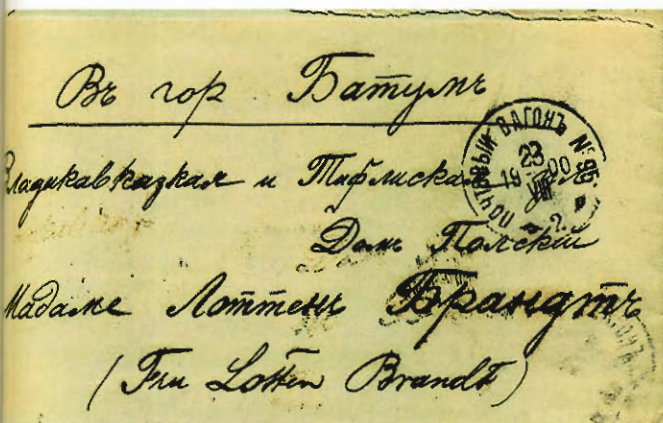 Въ гор Батумъ
Владикавказкая и Тифлиская
Домъ Полскій
Мадаме Лоттенъ Брандтъ
(Fru Lotten Brandt)
ПОЧТОВЫЙ ВАГОНЪ № 95
23
19 VIII 00